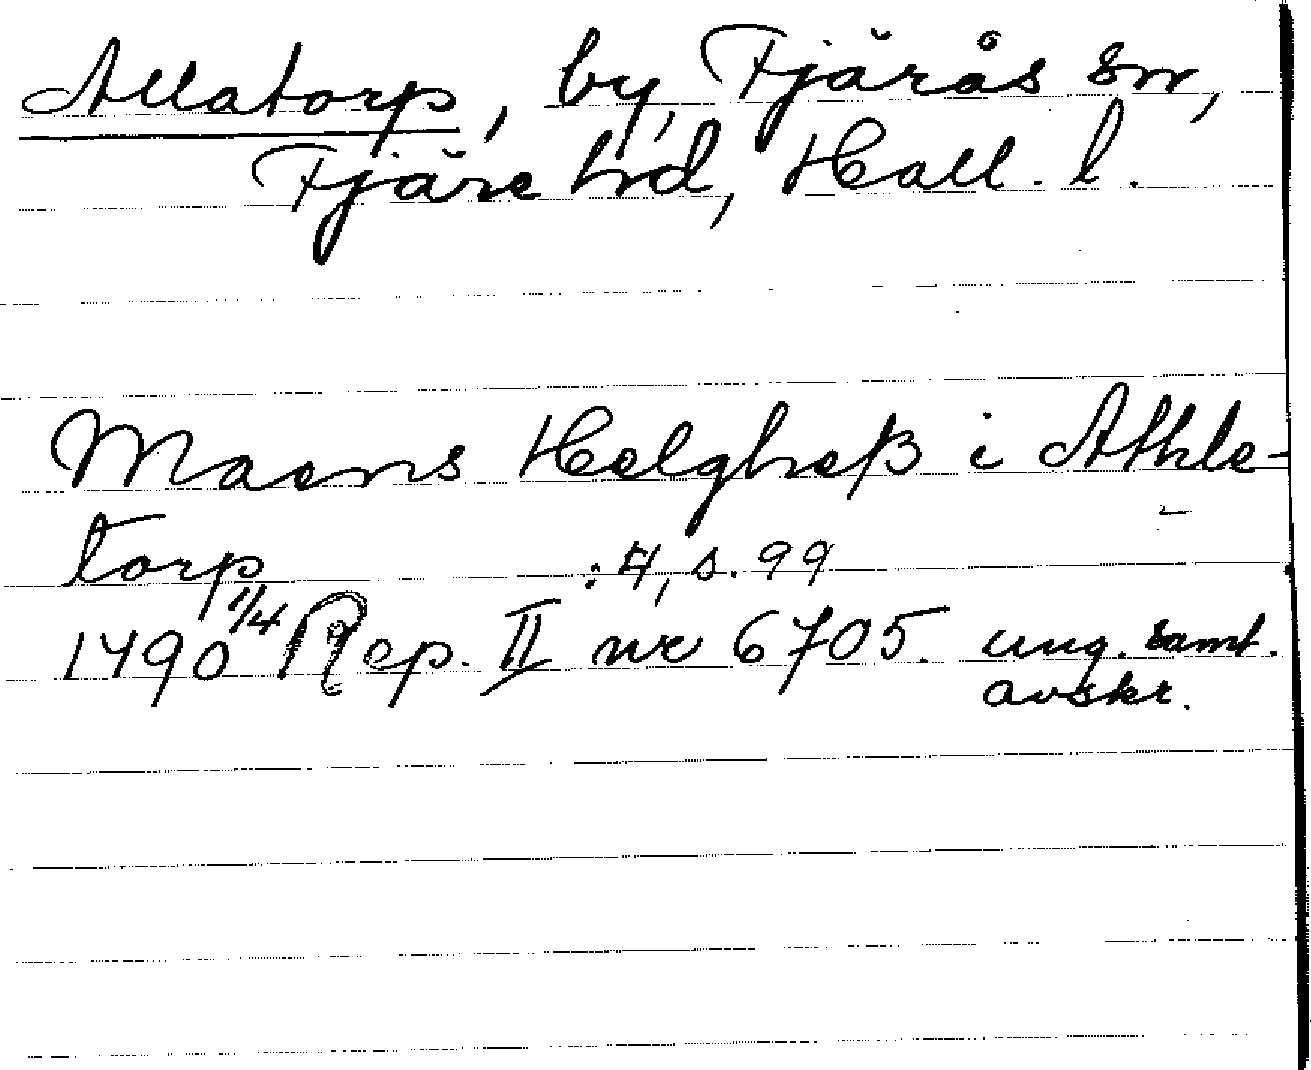 Allatorp, by, Fjärås sn,
Fjäre hd, Hall. l.
Maens Helgheß i Athle-
torp :4, s. 99
1490 1/4 Rep. II nr 6705. ung. samt.
avskr.